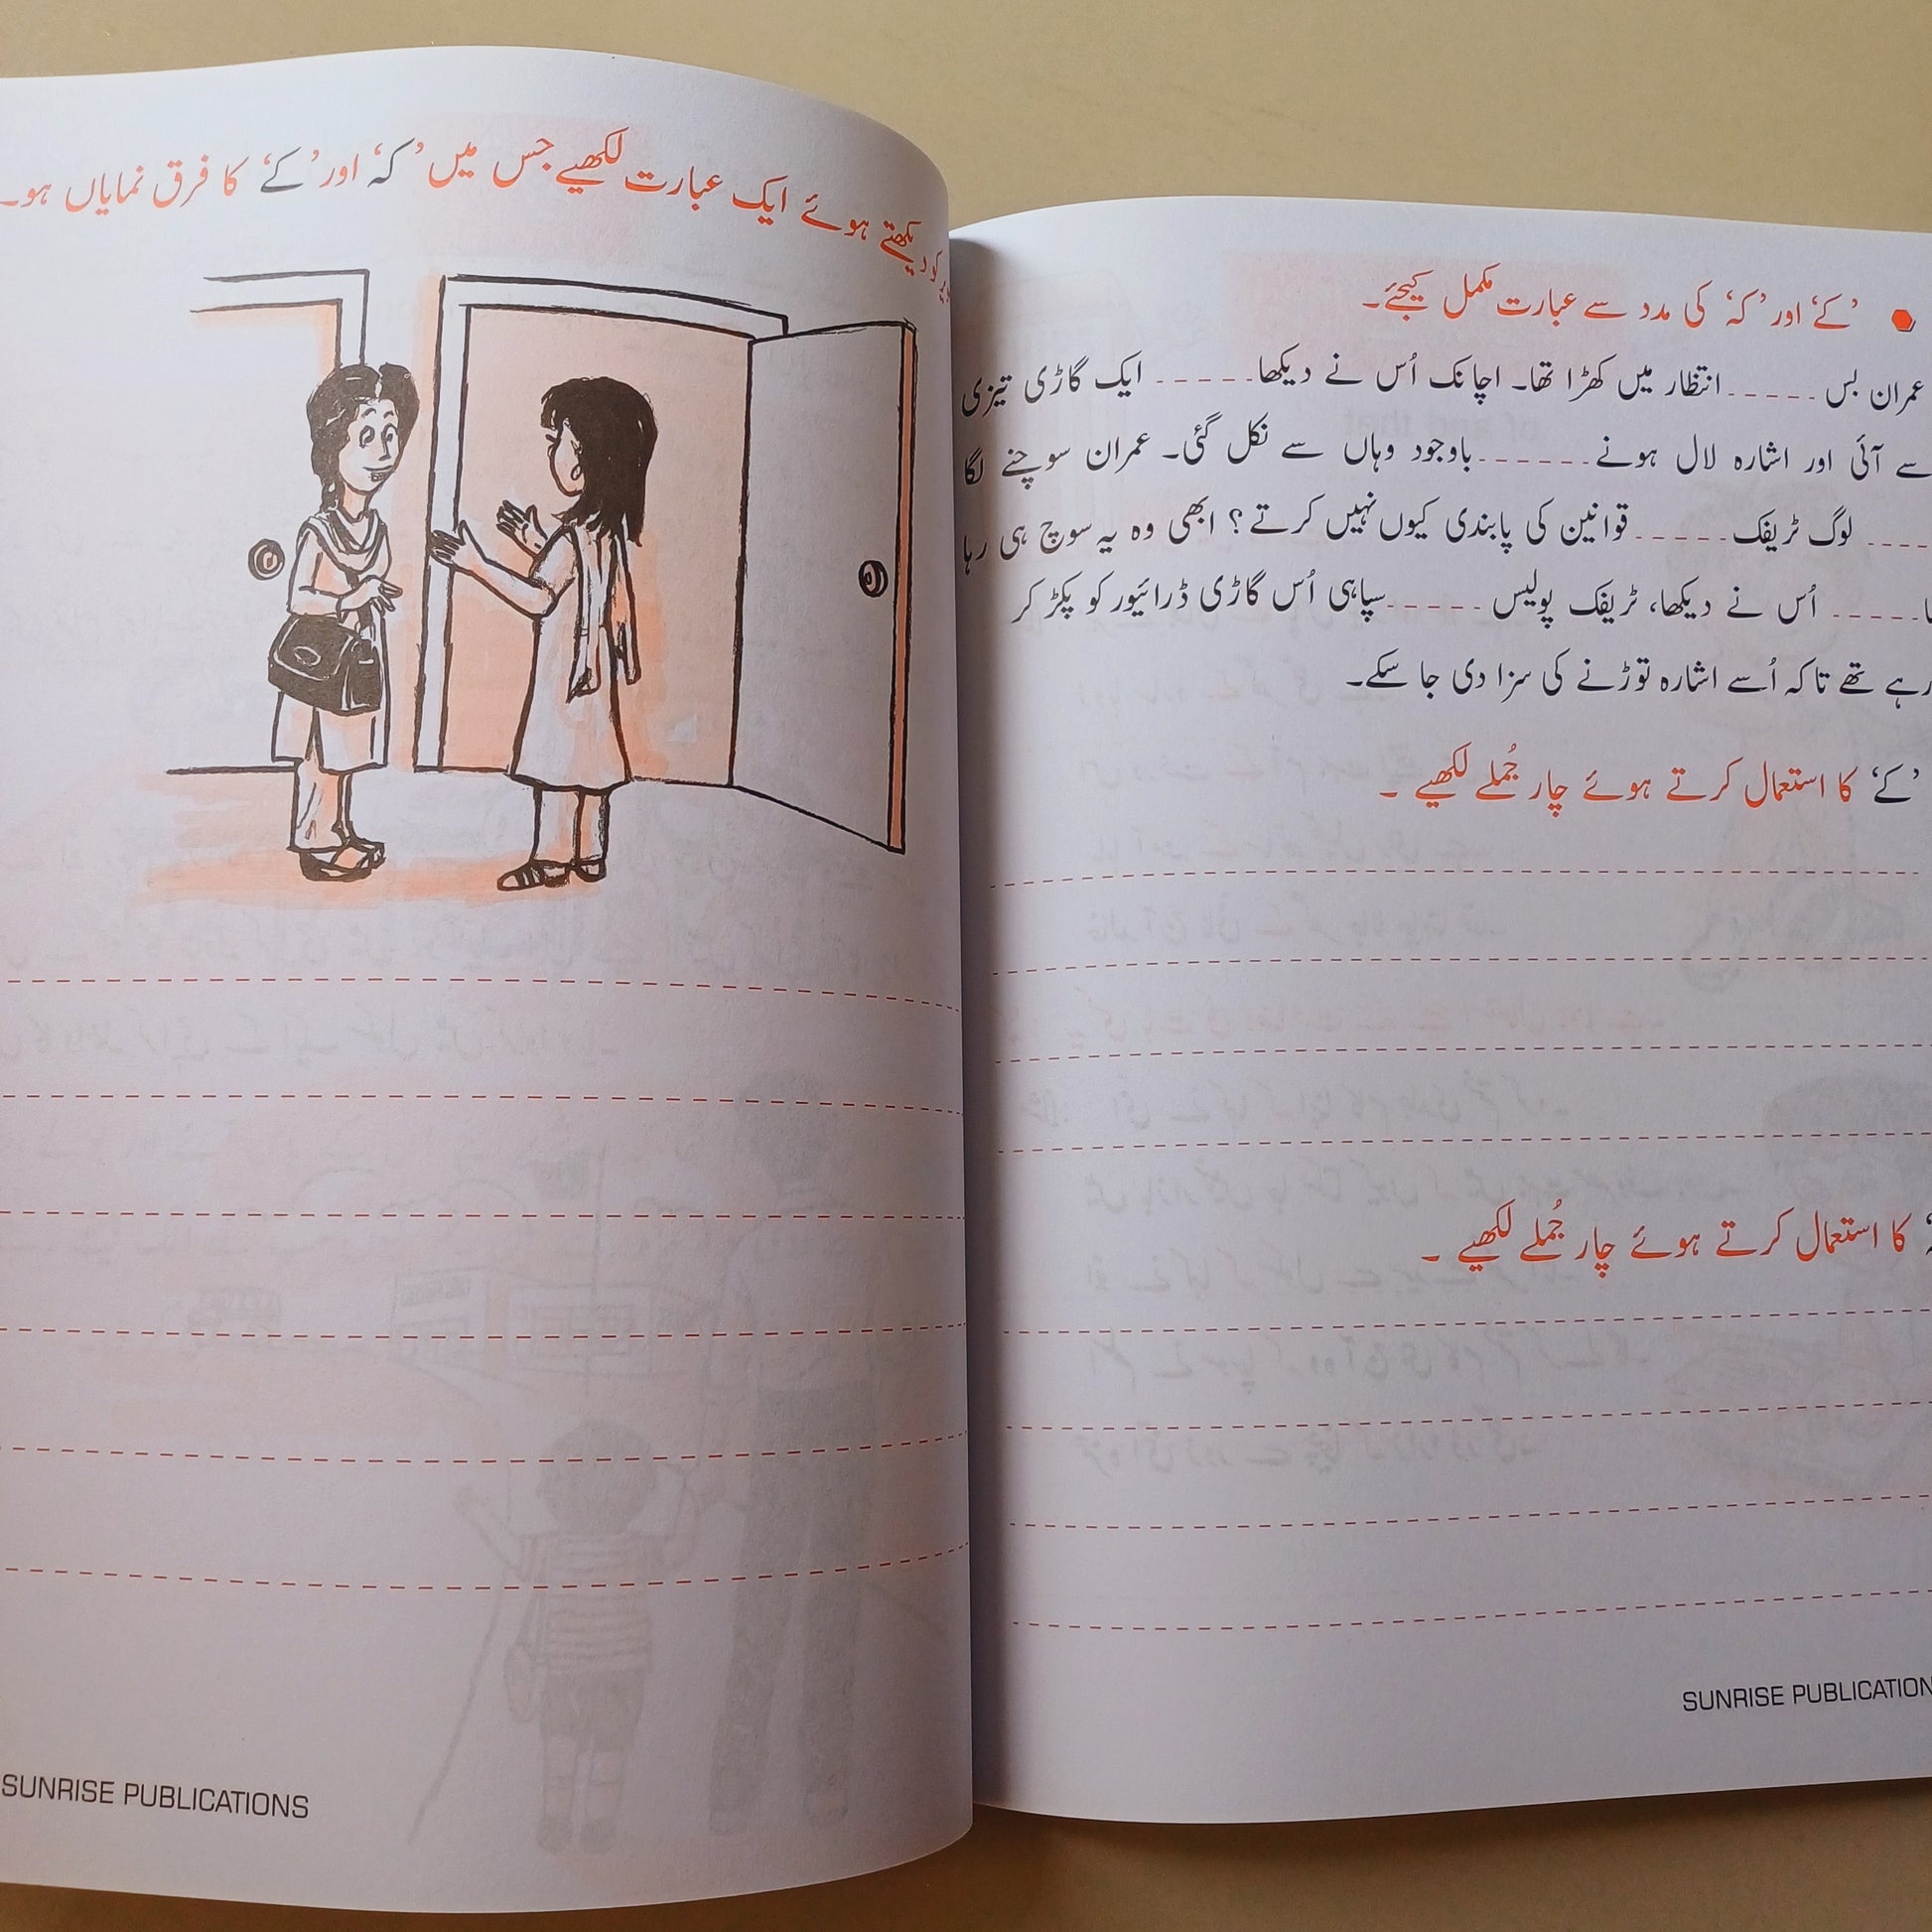 ’کے‘ اور ’کہ‘ کی مدد سے عبارت مکمل کیجئے۔
عمران بس ----- انتظار میں کھڑا تھا۔ اچانک اُس نے دیکھا ----- ایک گاڑی تیزی
سے آئی اور اشارہ لال ہونے ------ باوجود وہاں سے نکل گئی۔ عمران سوچنے لگا
---- لوگ ٹریفک ----- قوانین کی پابندی کیوں نہیں کرتے؟ ابھی وہ یہ سوچ ہی رہا
----- اُس نے دیکھا، ٹریفک پولیس ----- سپاہی اُس گاڑی ڈرائیور کو پکڑ کر
رہے تھے تاکہ اُسے اشارہ توڑنے کی سزا دی جا سکے۔
’کے‘ کا استعمال کرتے ہوئے چار جُملے لکھیے ۔
کا استعمال کرتے ہوئے چار جُملے لکھیے ۔
SUNRISE PUBLICATION
کو دیکھتے ہوئے ایک عبارت لکھیے جس میں ’کہ‘ اور ’کے‘ کا فرق نمایاں ہو۔
SUNRISE PUBLICATIONS